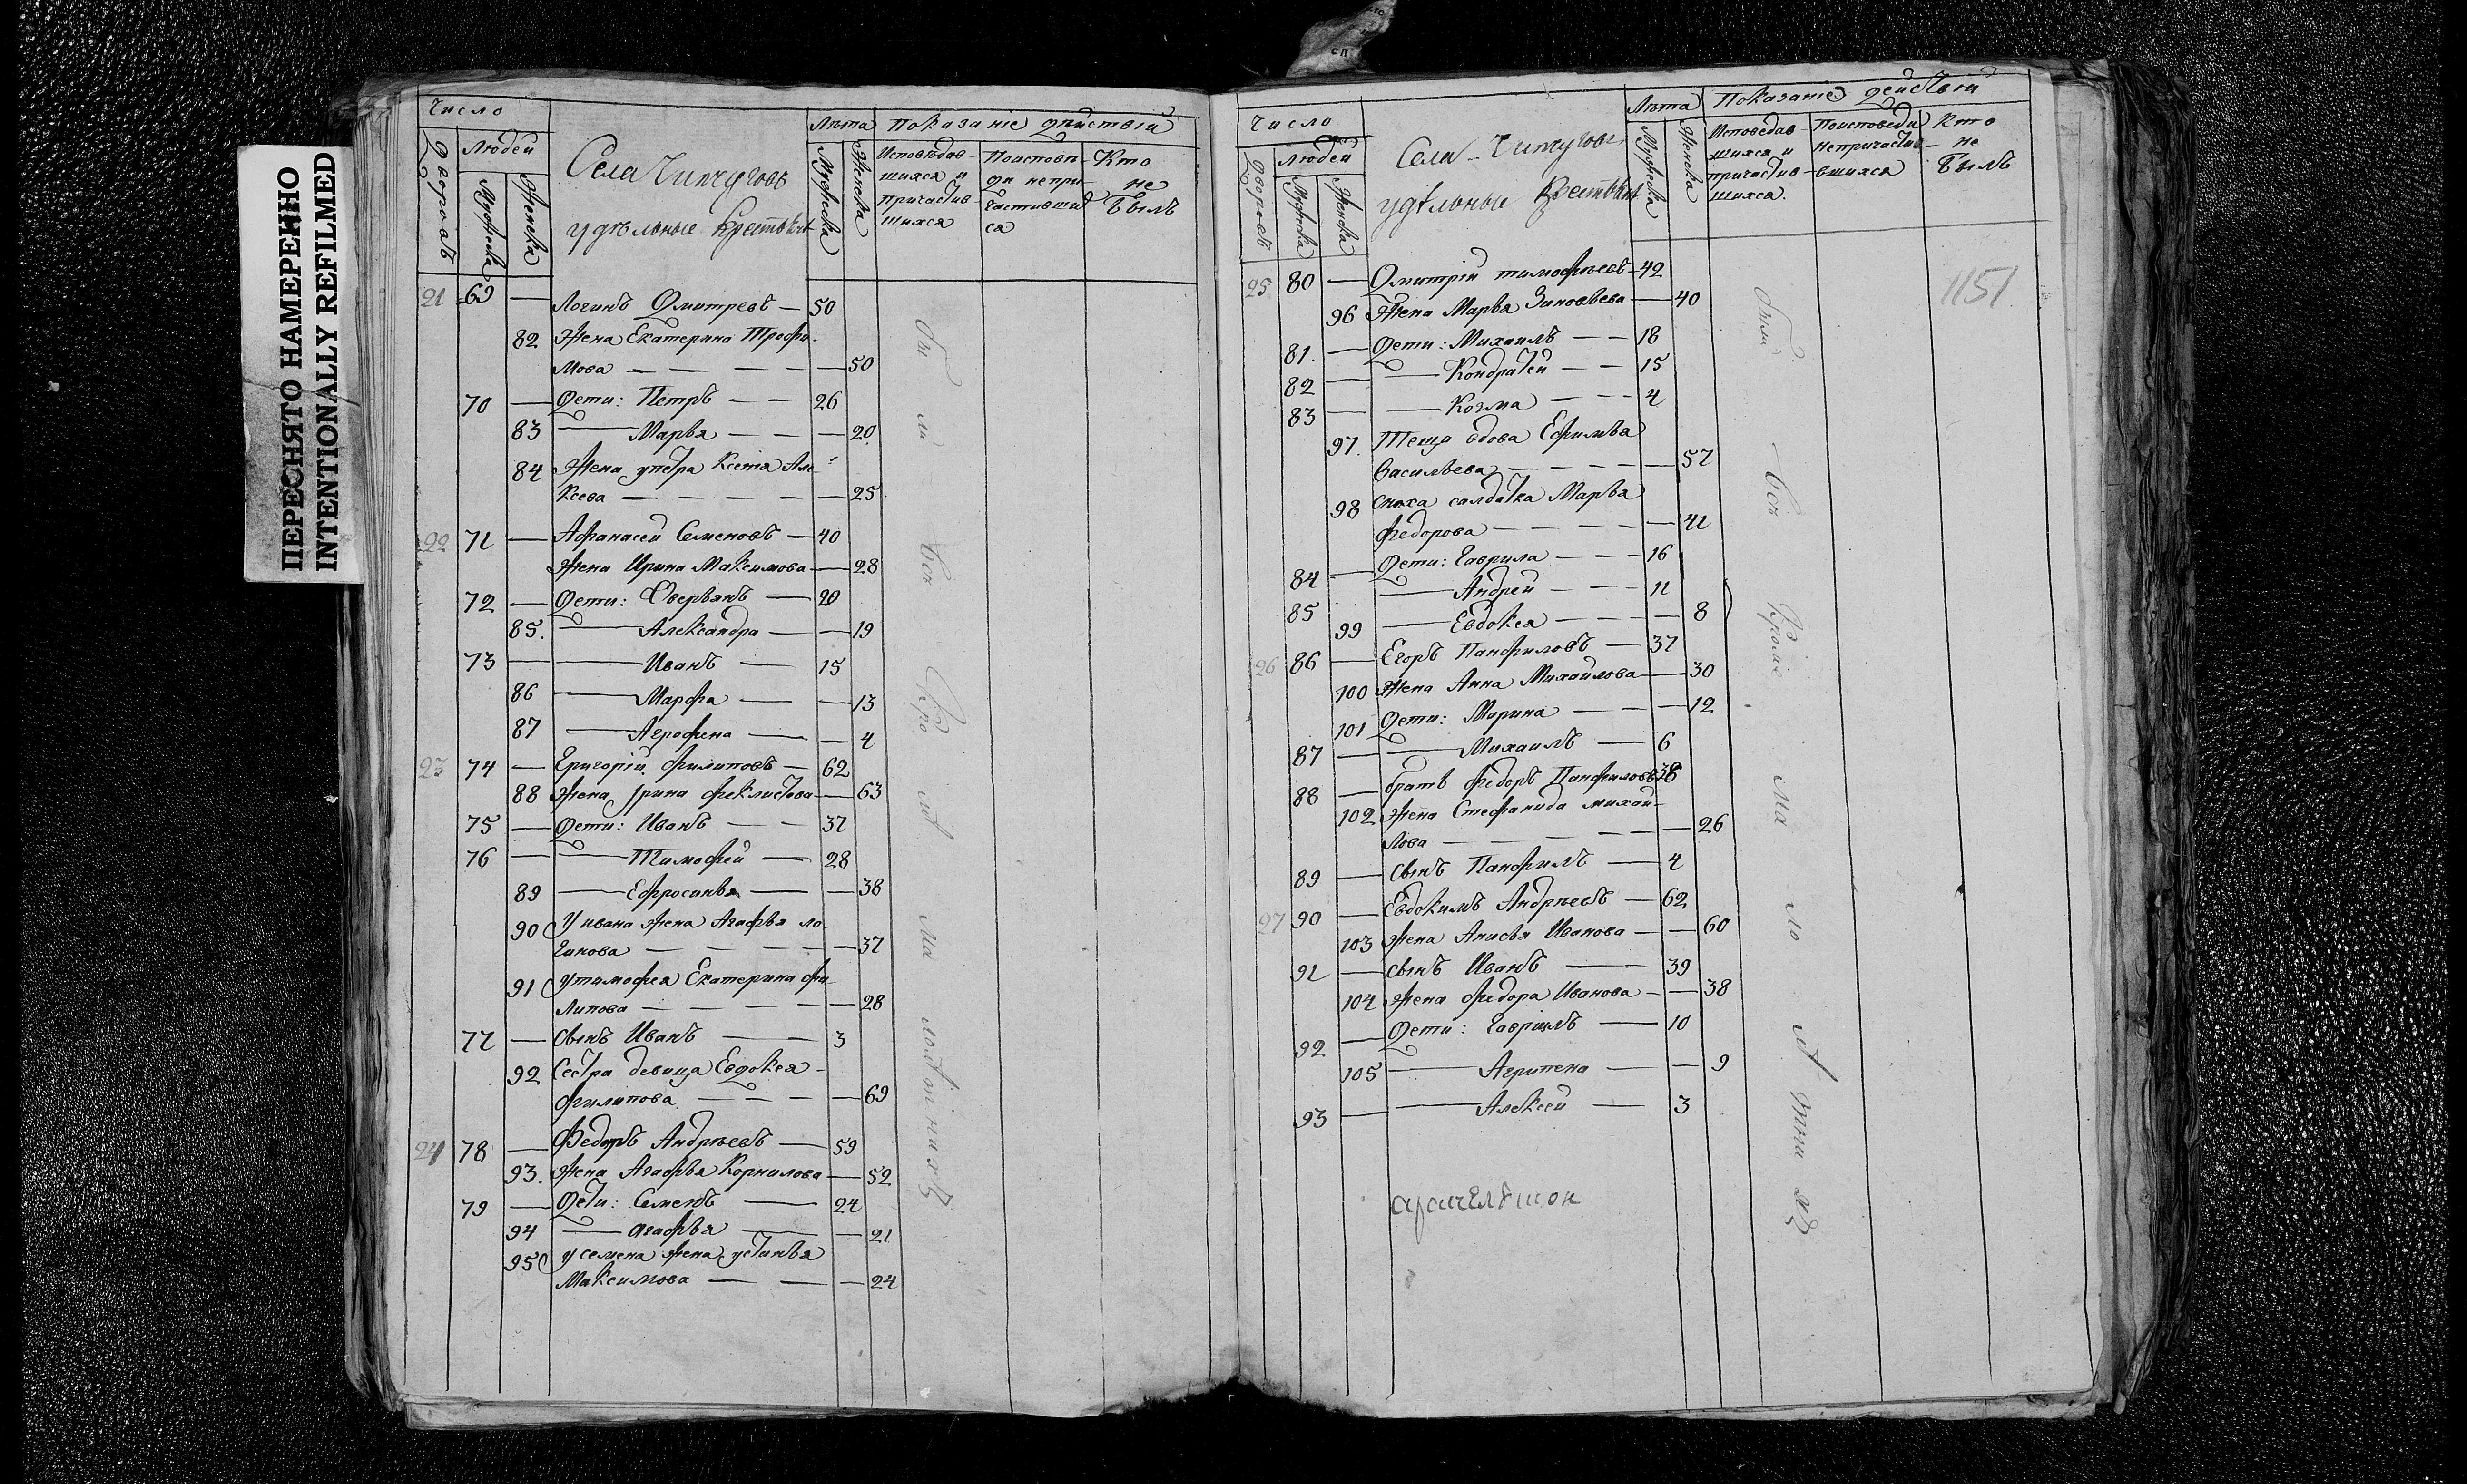 ПЕРЕСНЯТО НАМЕРЕННО
INTENTIONALLY REFILMED
Число
Дворовъ
Людей
Мужеска
Женска
Села Чипчугово
удѣльные Крестьяне
Лѣта
Мужеска
Женска
Показаніе дѣйствій
Исповѣдав-
шихся и
причастив-
шихся
Поисповѣ-
ди непри-
частивших
ся
Кто
не
былъ
21 69 — Логинъ Дмитревъ — 50
82 Жена Екатерина Трофи-
мова — — — — 50
70 — Дети: Петръ — — 26
83 — Марья — — — 20
84 Жена у петра Ксенія Але
ксеева — — — — 25
22 71 — Афанасей Семеновъ — 40
Жена Ирина Максимова — 28
72 — Дети: Аверьянъ — 20
85. — Александра — — 19
73 — — Иванъ — 15
86 — Марфа — — 13
87 — Агрофена — — 4
23 74 — Григорій филиповъ — 62
88 Жена Ірина феклистова — 63
75 — Дети: Иванъ — — 37
76 — — Тимофей — 28
89 — Ефросинья — — 38
90 У ивана жена Агафья ло-
гинова — — — — 37
91 у тимофея Екатерина фи-
липова — — — — 28
77 — Сынъ Иванъ — 3
92 Сестра девица Евдокея
филипова — — — — 69
24 78 — Федоръ Андреевъ — 59
93. Жена Агафья Корнилова — 52
79 — Дети: Семенъ — 24
94 — агафья — — 21
95 у семена жена устинья
Максимова — — — 24
Число
Дворовъ
Людей
Мужеска
Женска
Села Чипчугово
удѣльные Крестьяне
Лѣта
Мужеска
Женска
Показаніе дейстьвій
Исповедав-
шихся и
причастив-
шихся.
Поисповеди
непричасти-
вшихся
Кто
не
былъ
1151
25 80 — Дмитрій тимофеевъ — 42
96 Жена Марья Зиновьева — 40
81. — Дети: Михаилъ — — 18
82 — — Кондратей — — 15
83 — — Козма — — — 4
97. Теща вдова Ефимья
Васильева — — — — 57
98 сноха салдатка Марья
федорова — — — — 41
84 — Дети: Гаврила — — — 16
85 — Андрей — — — 11
99 — Евдокея — — — 8
26 86 — Егоръ Панфиловъ — 37
100 Жена Анна Михайлова — 30
101 Дети: Марина — — — 12
87 — — Михаилъ — 6
88 — братъ федоръ Панфиловъ 38
102 Жена Стефанида михай-
лова — — — — 26
89 — сынъ Панфилъ — 4
27 90 — Евдокимъ Андреевъ — 62
103 Жена Анисья Иванова — — 60
91 — сынъ Иванъ — 39
104 Жена федора Иванова — — 38
92 — Дети: Гаврилъ — 10
105 — Агрипена — — 9
93 — — Алексей — 3